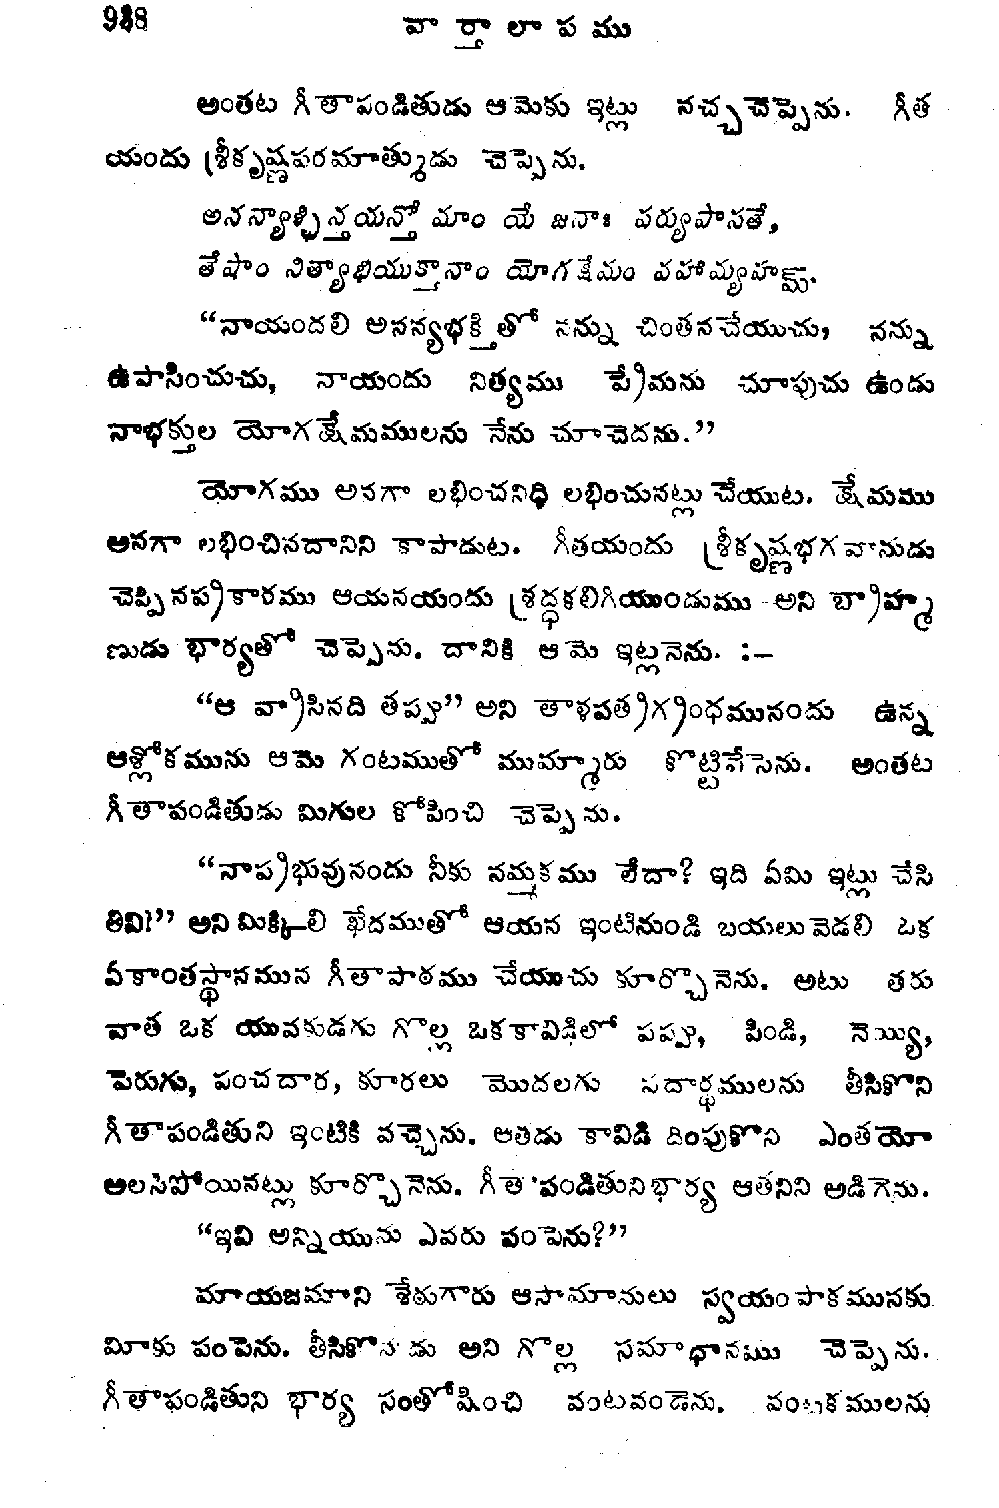 వార్తాలాపము
అంతట గీతాపండితుడు ఆమెకు ఇట్లు నచ్చచెప్పెను. గీత
యందు శ్రీకృష్ణపరమాత్ముడు చెప్పెను.
అనన్యాశ్చిన్తయన్తో మాం యే జనాః పర్యుపాసతే,
తేషాం నిత్యాభియుక్తానాం యోగక్షేమం వహామ్యహమ్.
“నాయందలి అనన్యభక్తితో నన్ను చింతనచేయుచు, నన్ను
ఉపాసించుచు, నాయందు నిత్యము ప్రేమను చూపుచు ఉండు
నాభక్తుల యోగక్షేమములను నేను చూచెదను.”
యోగము అనగా లభించనిధి లభించునట్లు చేయుట. క్షేమము
అనగా లభించినదానిని కాపాడుట. గీతయందు శ్రీకృష్ణభగవానుడు
చెప్పినప్రకారము ఆయనయందు శ్రద్ధకలిగియుండుము - అని బ్రాహ్మ
ణుడు భార్యతో చెప్పెను. దానికి ఆమె ఇట్లనెను. :—
“ఆ వ్రాసినది తప్పు” అని తాళపత్రగ్రంధమునందు ఉన్న
ఆశ్లోకమును ఆమె గంటముతో ముమ్మారు కొట్టివేసెను. అంతట
గీతాపండితుడు మిగుల కోపించి చెప్పెను.
“నాప్రభువునందు నీకు నమ్మకము లేదా? ఇది ఏమి ఇట్లు చేసి
తివి!” అని మిక్కిలి ఖేదముతో ఆయన ఇంటినుండి బయలువెడలి ఒక
ఏకాంతస్థానమున గీతాపాఠము చేయుచు కూర్చొనెను. అటు తరు
వాత ఒక యువకుడగు గొల్ల ఒకకావిడిలో పప్పు, పిండి, నెయ్యి,
పెరుగు, పంచదార, కూరలు మొదలగు పదార్థములను తీసికొని
గీతాపండితుని ఇంటికి వచ్చెను. ఆతడు కావిడి దింపుకొని ఎంతయో
అలసిపోయినట్లు కూర్చొనెను. గీతాపండితునిభార్య ఆతనిని అడిగెను.
“ఇవి అన్నియును ఎవరు పంపెను?”
మాయజమాని శేఠుగారు ఆసామానులు స్వయంపాకమునకు
మీకు పంపెను. తీసికొనుడు అని గొల్ల సమాధానము చెప్పెను.
గీతాపండితుని భార్య సంతోషించి వంటవండెను. వంటకములను